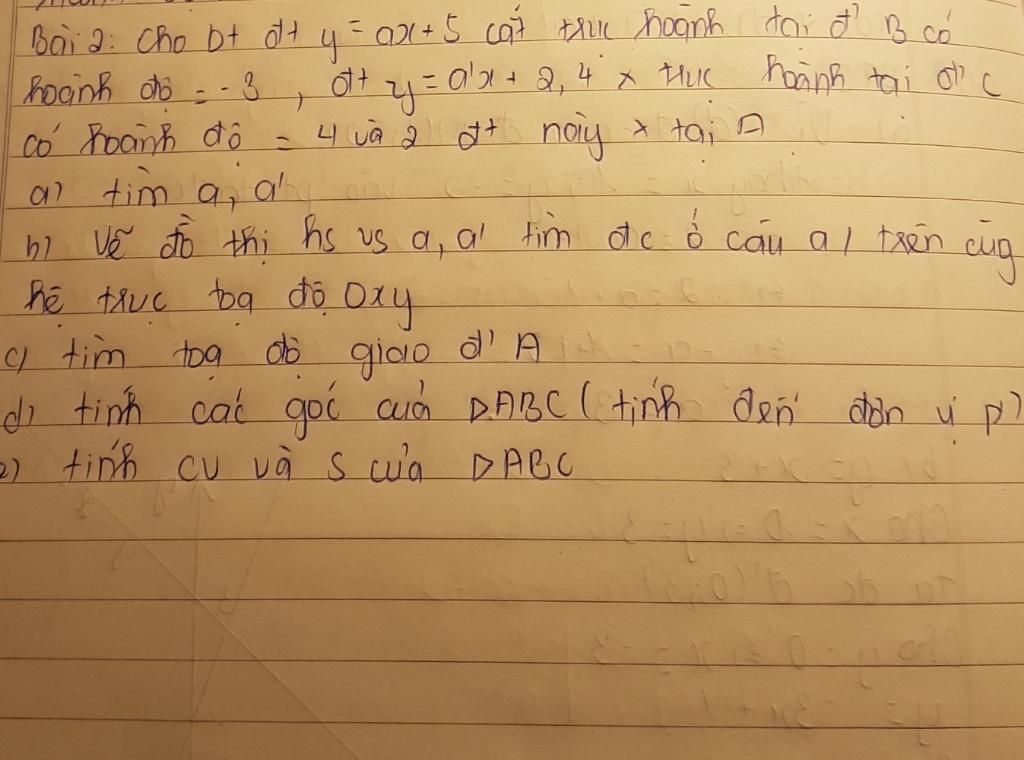 Bài 2: Cho bt đt y = ax + 5 cắt trục hoành tại đ' B có
hoành độ = -3, đt y = a'x + 2,4 x trục hoành tại đ' C
có hoành độ = 4 và 2 đt này x tại A
a) tìm a, a'
b) Vẽ đồ thị hs vs a, a' tìm đc ở câu a/ trên cùg
hệ trục toạ độ Oxy
c) tìm toạ độ giao đ' A
d) tính các góc của ΔABC (tính đến đơn vị p')
e) tính CV và S của ΔABC